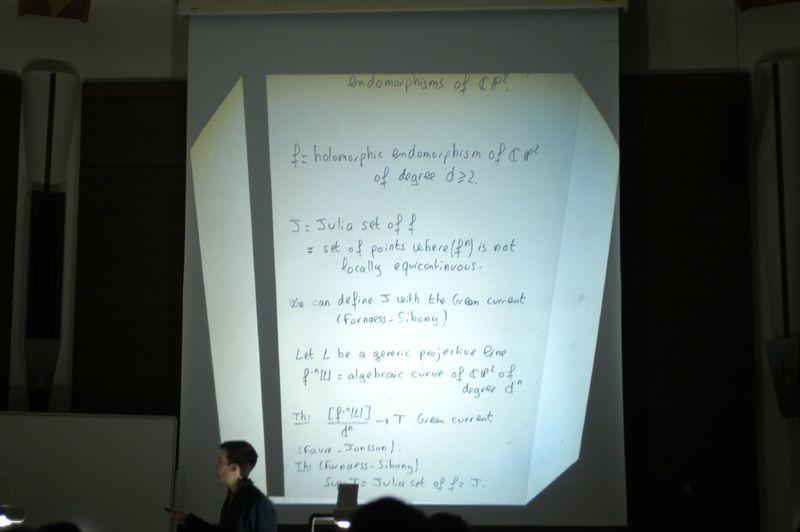 endomorphisms of ℂℙ².
f = holomorphic endomorphism of ℂℙ²
of degree d ≥ 2.
J = Julia set of f
= set of points where (fⁿ) is not
locally equicontinuous.
We can define J with the Green current
(Fornaess - Sibony)
Let L be a generic projective line
f⁻ⁿ(L) = algebraic curve of ℂℙ² of
degree dⁿ
Th: [f⁻ⁿ(L)]/dⁿ → T Green current
(Favre - Jonsson).
Th: (Fornaess - Sibony)
T = Julia set of f = J.